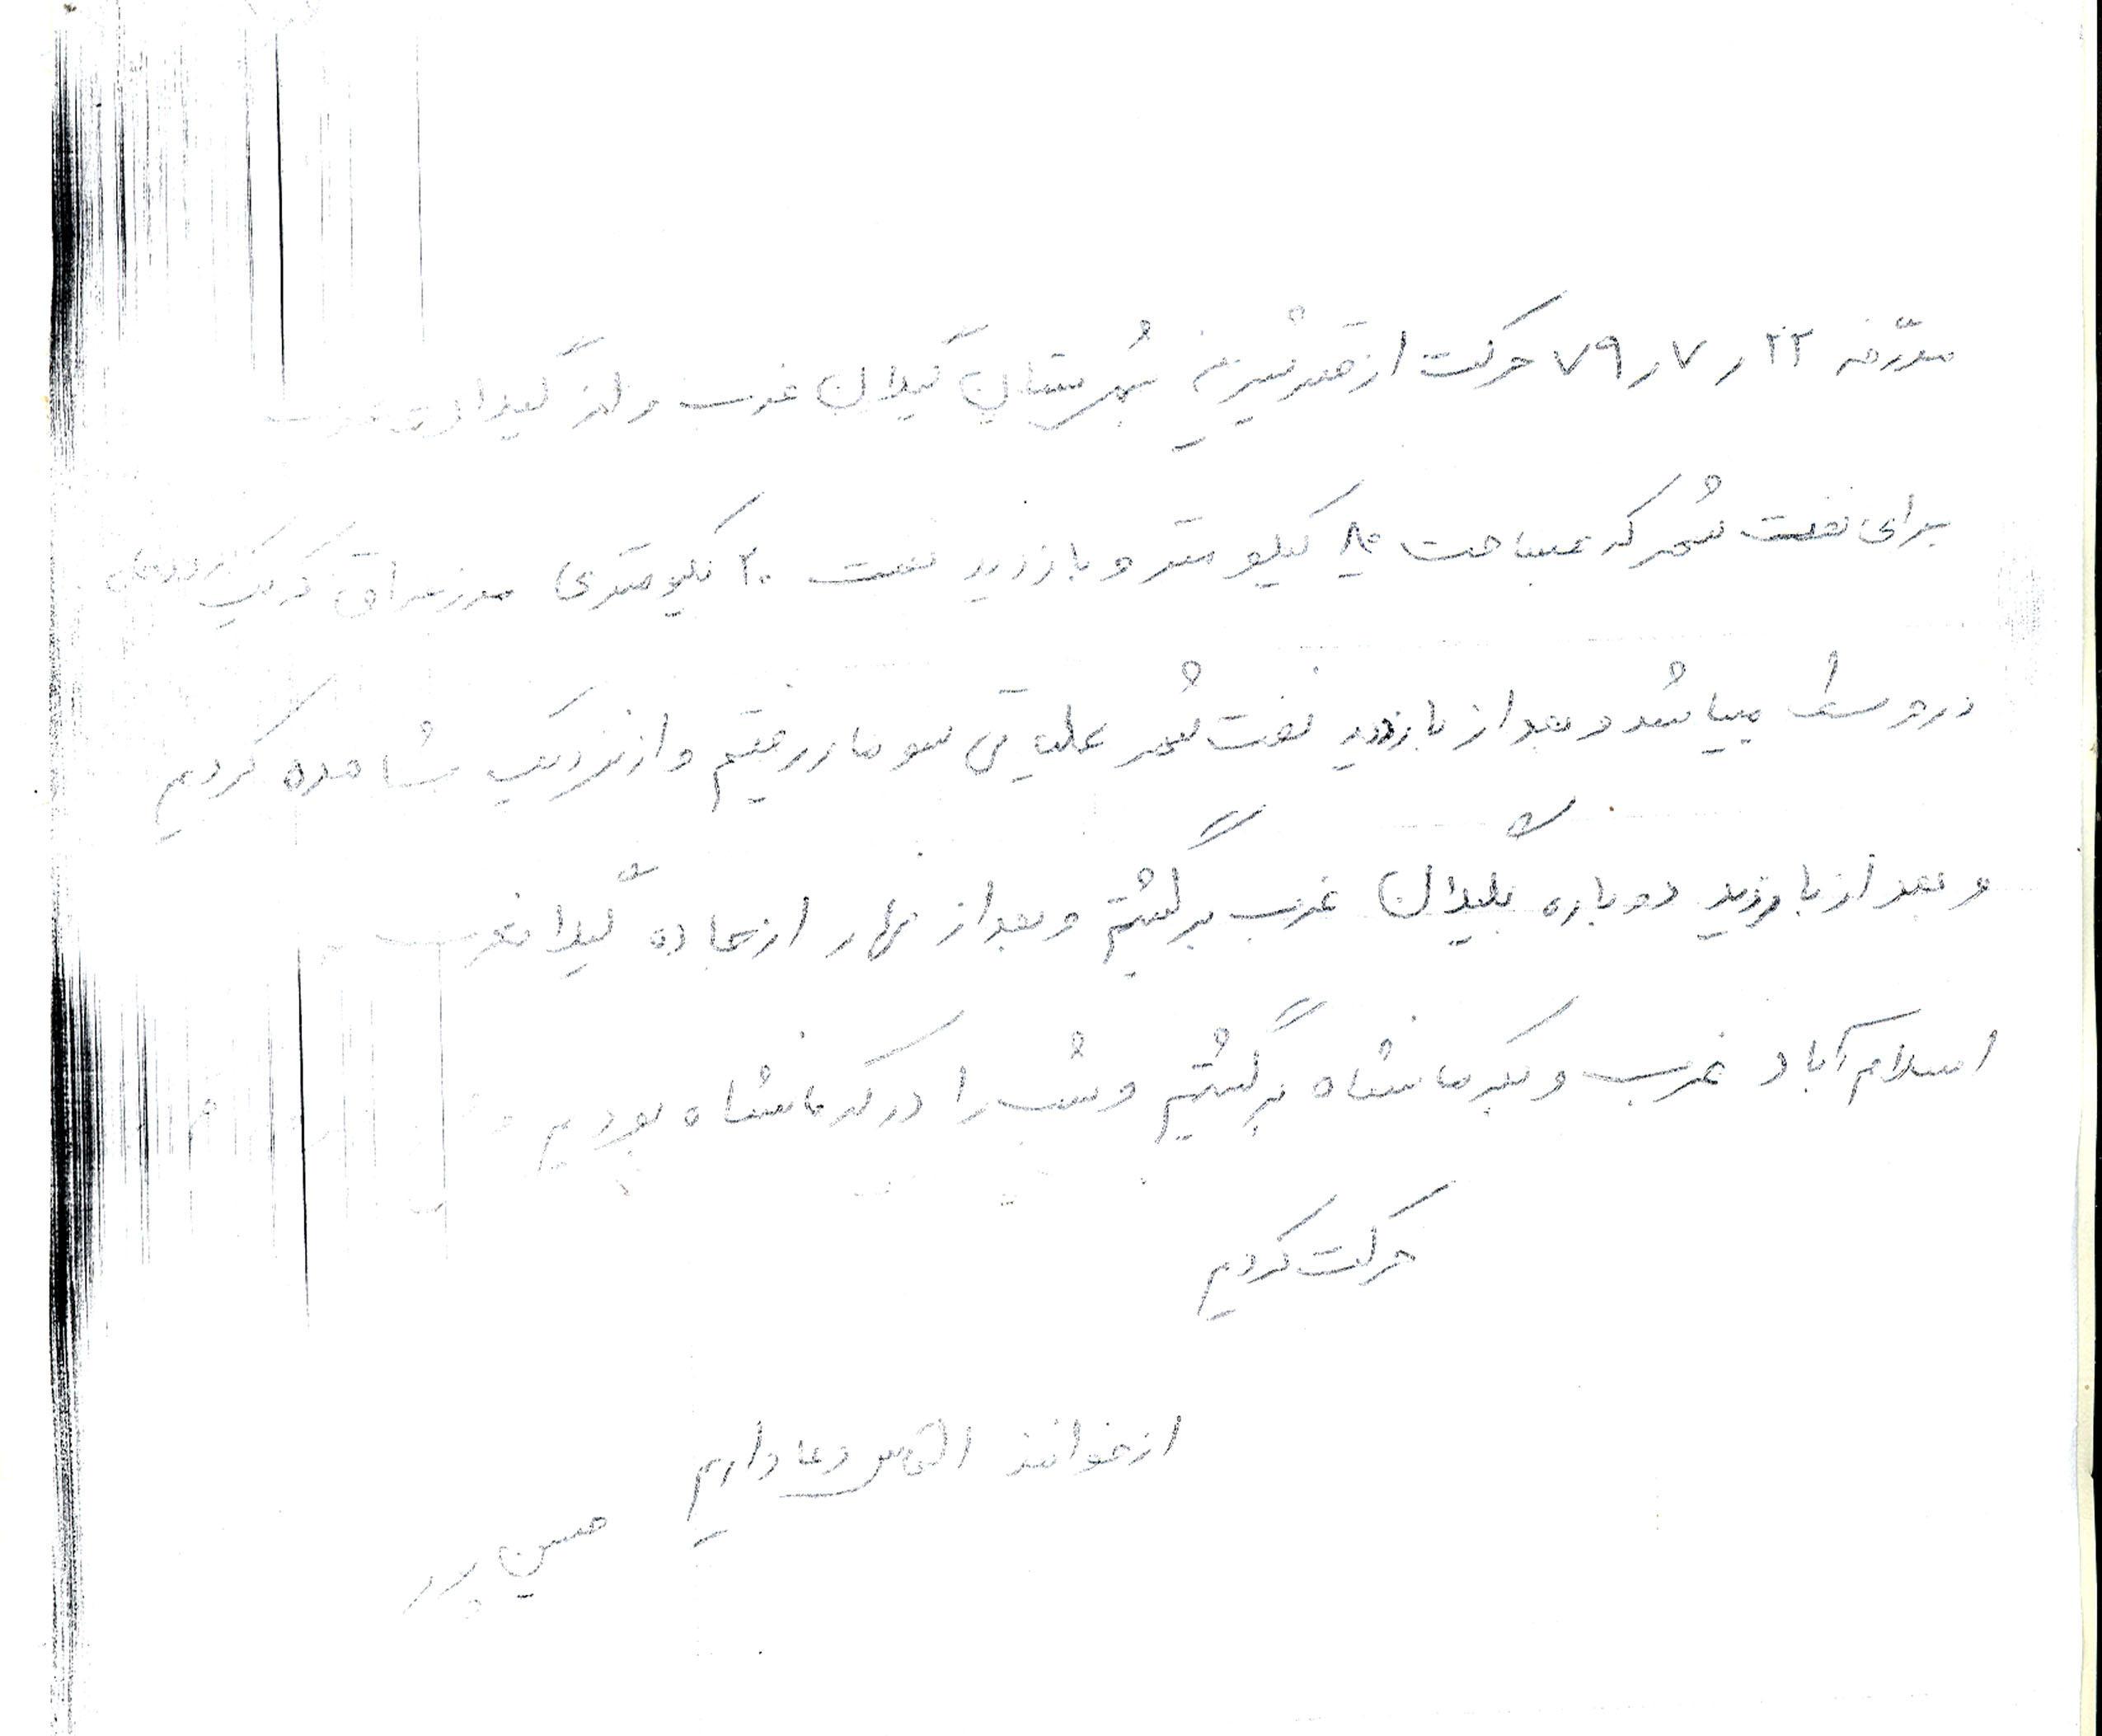 مورخه ۲۲ ر ۷ ر ۷۹ حرکت از قصر شیرین بشهرستان گیلان غرب و از گیلان غرب
برای نفت شهر که بمسا حت ۸۰ کیلو متر و بازدید نفت ۲۰ کیلو متری مرز عراق که یک
در وسط میبا شد و بعد از بازدید نفت شهر عملیاتی سو مار رفتیم و از نزدیک مشا هده کردیم
و بعد از بازدید دوباره بگیلان غرب برگشتیم و بعد از نهار از جاده گیلا نغرب
اسلام آباد غرب و بکرما نشاه برگشتیم و شب را در کرمانشاه بودیم و
حرکت کردیم
از خوانند التماس دعا داریم
حسین پور